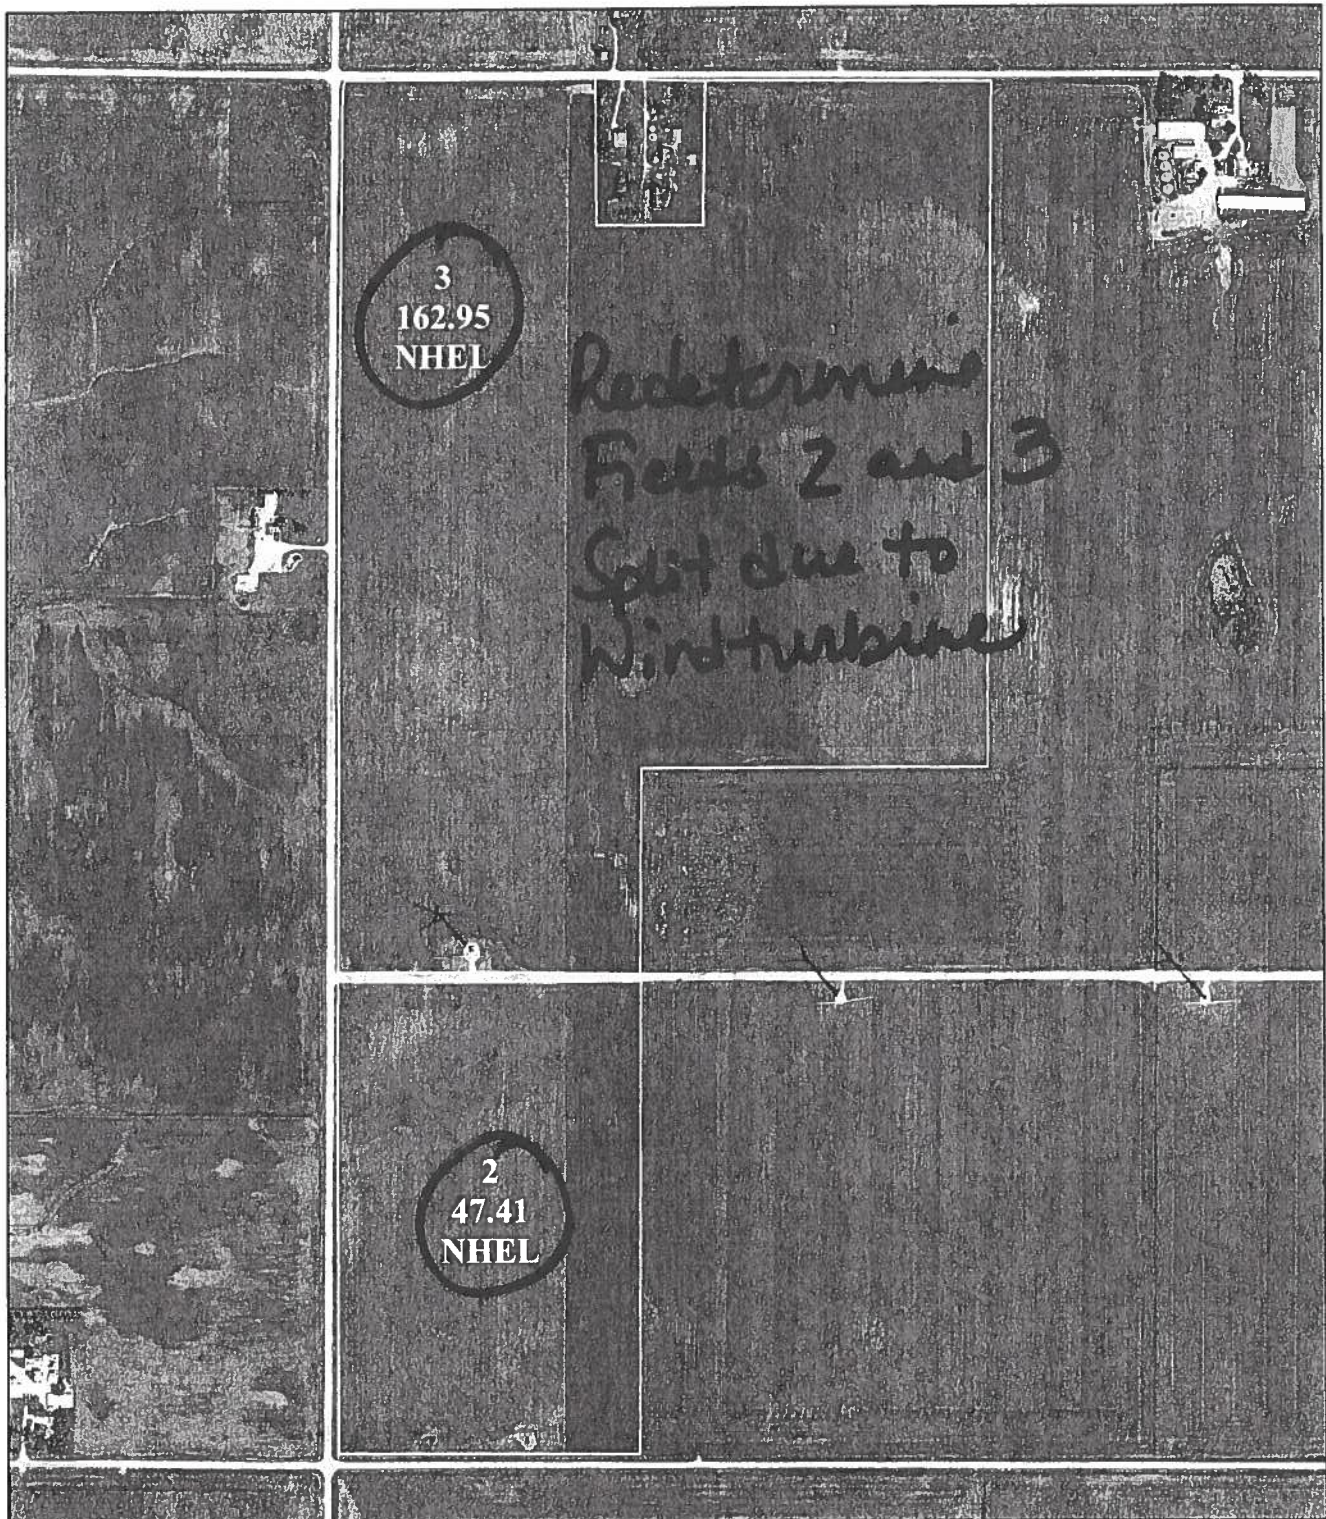 3
162.95
NHEL
Redetermine
Fields 2 and 3
Split due to
Windturbine
2
47.41
NHEL